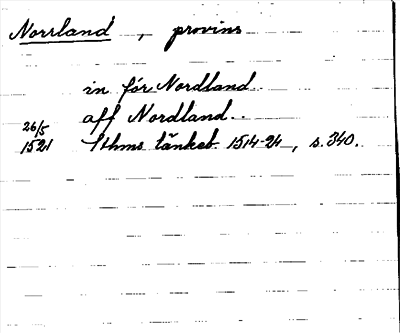 Norrland, provins
in för Nordland
aff Nordland..
26/5
1521 Sthms tänkeb. 1514-24, s. 340.